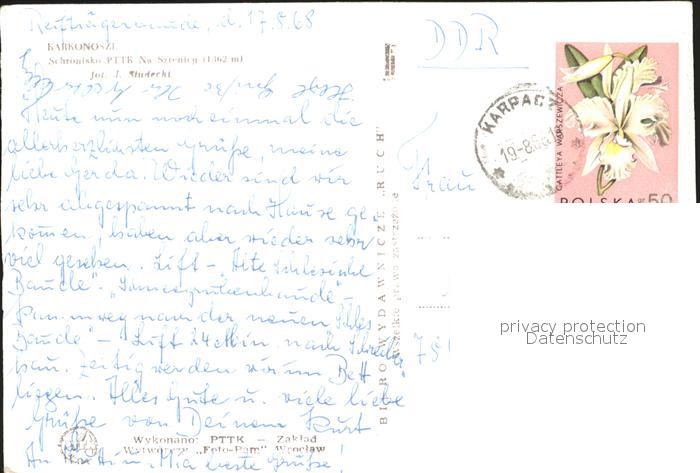 Reifträgerbaude, d. 17.8.68
KARKONOSZE
Schronisko PTTK Na Szrenicy (1362 m)
fot. J. Siudecki
Heute nun noch einmal die
allerherzlichsten Grüße, meine
liebe Gerda. Wieder sind wir
sehr abgespannt nach Hause ge-
kommen, haben aber wieder sehr
viel gesehen. Lift - "Alte Schlesische
Baude" - "Schneegrubenbaude" -
Kammweg nach der neuen Schles.
Baude" - Lift 24 Min. nach Schreiber-
hau. Zeitig werden wir im Bett
liegen. Alles Gute u. viele liebe
Grüße von Deinem Kurt
An beste Grüße!
Wykonano: PTTK — Zakład
Wytwórczy „Foto-Pam" Wrocław
BIURO WYDAWNICZE „RUCH"
Wszelkie prawa zastrzeżone
DDR
Frau
KARPACZ
19-8.68
CATTLEYA WARSZEWICZA
POLSKA
50
privacy protection
Datenschutz